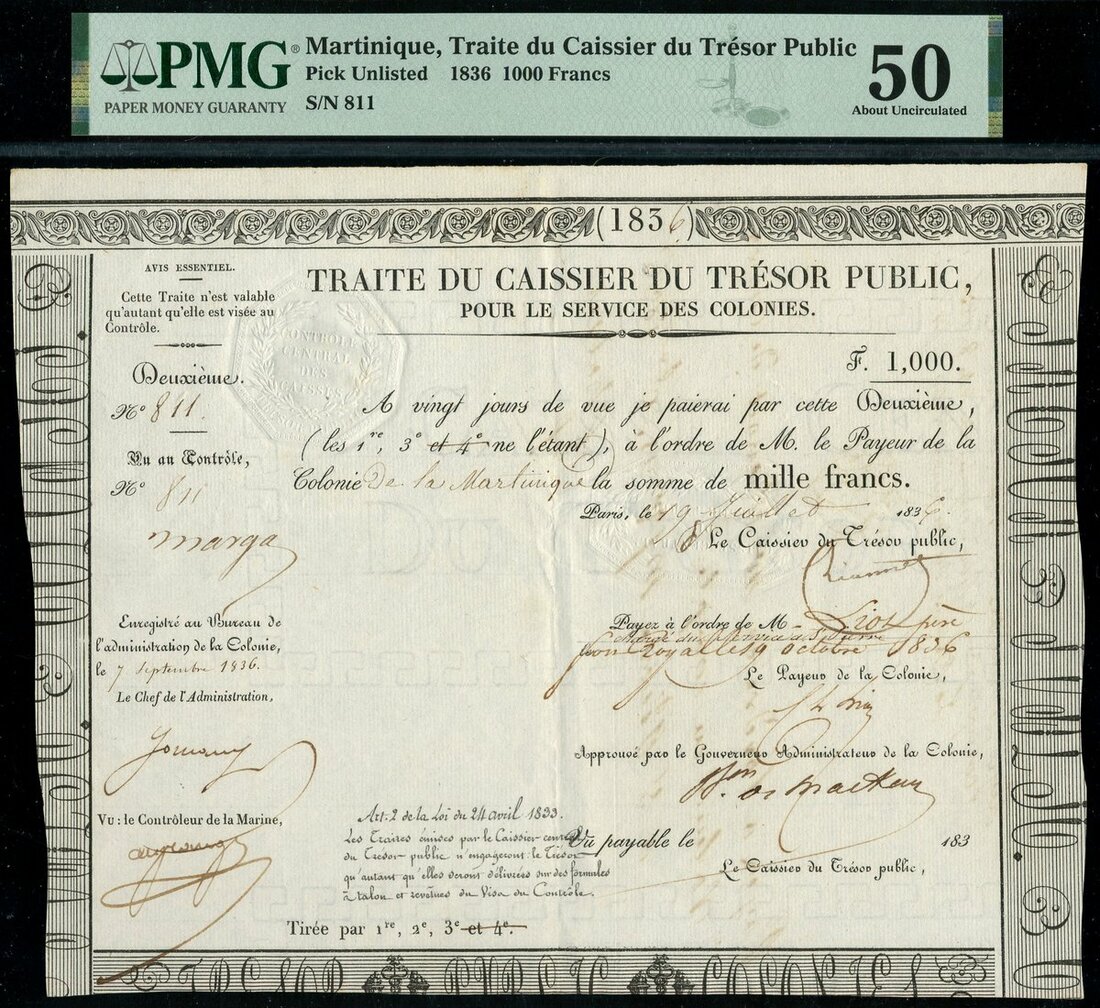 PMG®
PAPER MONEY GUARANTY
Martinique, Traite du Caissier du Trésor Public
Pick Unlisted 1836 1000 Francs
S/N 811
50
About Uncirculated
(1836)
AVIS ESSENTIEL.
Cette Traite n'est valable
qu'autant qu'elle est visée au
Contrôle.
CONTRÔLE
CENTRAL
DES
CAISSES
TRAITE DU CAISSIER DU TRÉSOR PUBLIC,
POUR LE SERVICE DES COLONIES.
F. 1,000.
Deuxième.
Nº 811.
Vu au Contrôle,
Nº 811
marga
A vingt jours de vue je paierai par cette Deuxième,
(les 1re, 3e et 4e ne l'étant), à l'ordre de M. le Payeur de la
Colonie De la Martinique la somme de mille francs.
Paris, le 19 Juillet 1836.
Le Caissier du Trésor public,
Enregistré au Bureau de
l'administration de la Colonie,
le 7 Septembre 1836.
Le Chef de l'Administration,
Payez à l'ordre de M père
Royal le 19 octobre 1836
Le Payeur de la Colonie,
Approuvé par le Gouverneur Administrateur de la Colonie,
Vu : le Contrôleur de la Marine,
Art: 2 de la Loi du 24 avril 1833.
Les Traites émises par le Caissier
du Trésor public n'engageront le Trésor
qu'autant qu'elles seront délivrées sur des formules
à talon et revêtues du Visa du Contrôle.
Vu payable le 183
Le Caissier du Trésor public,
Tirée par 1re, 2e, 3e et 4e.